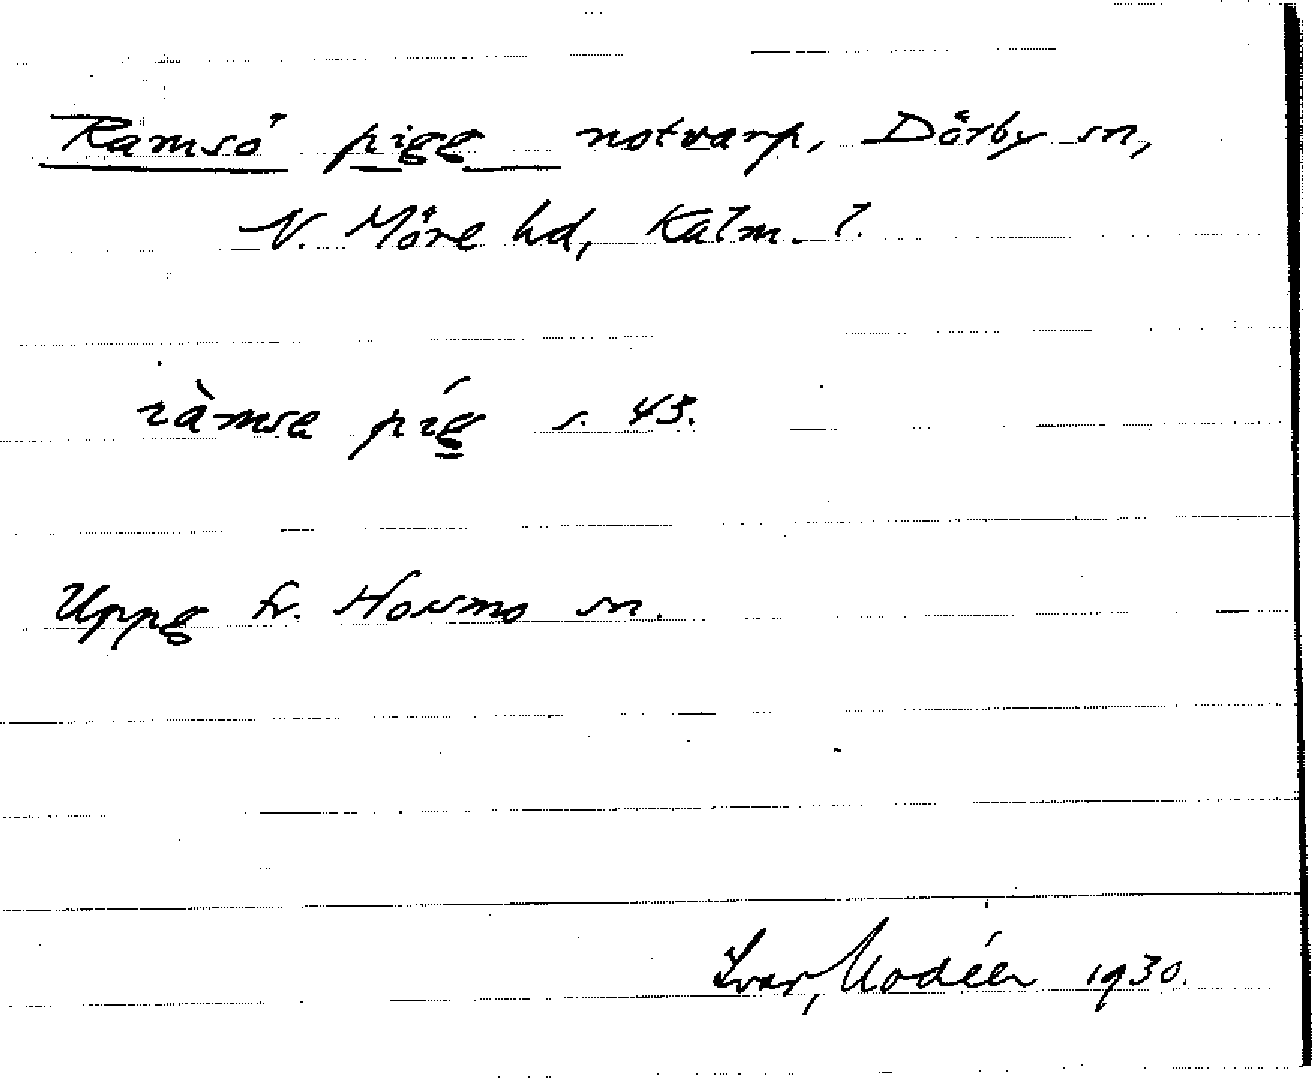 Ramsö pigg notvarp, Dörby sn,
N. Möre hd, Kalm. l.
ràmsa píg s. 45.
Uppg fr. Hossmo sn.
Ivar Modéer 1930.